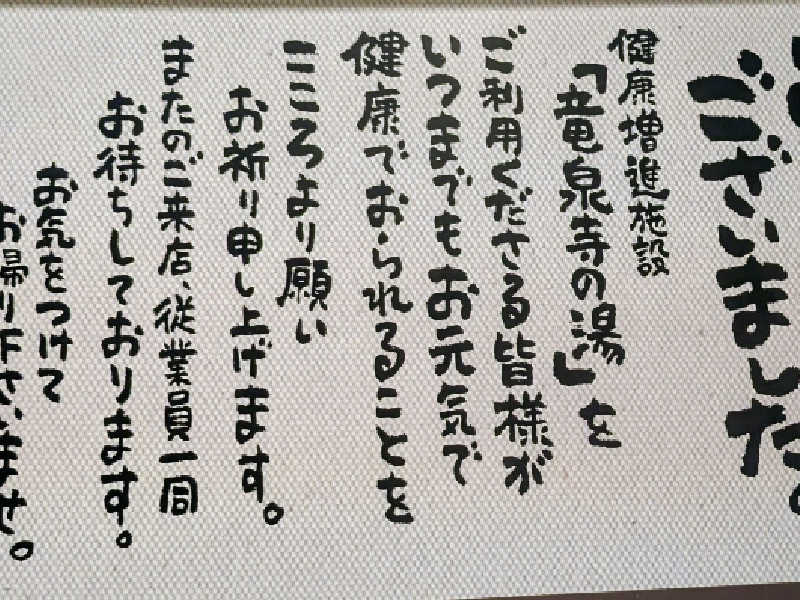 ございました。
健康増進施設
「竜泉寺の湯」を
ご利用くださる皆様が
いつまでもお元気で
健康でおられることを
こころより願い
お祈り申し上げます。
またのご来店、従業員一同
お待ちしております。
お気をつけて
お帰り下さいませ。